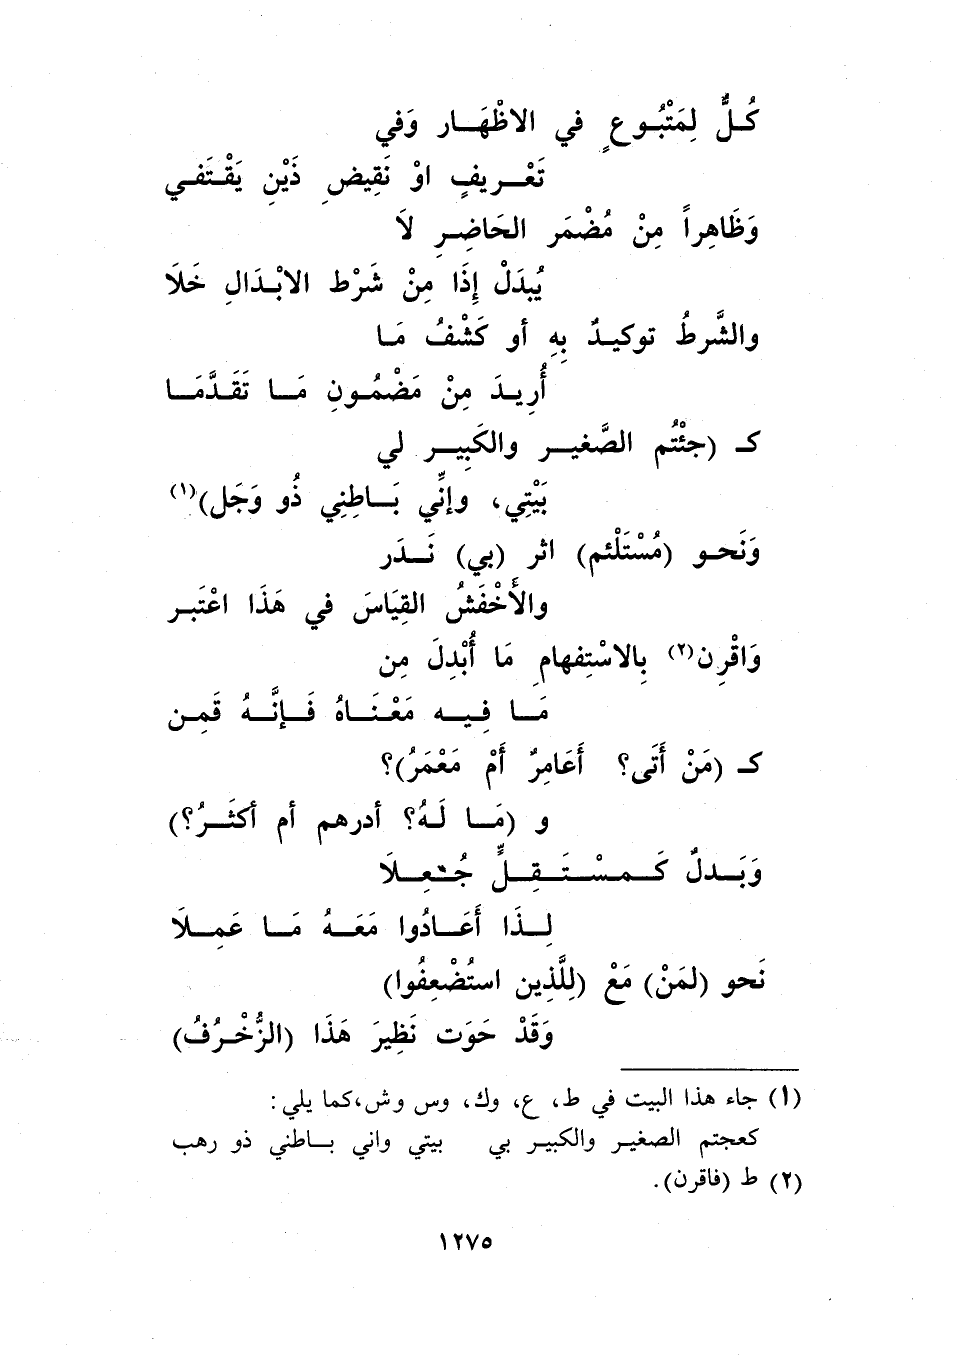 كُلٌّ لِمَتْبُوعٍ في الاظْهَار وَفي
تَعْريفٍ اوْ نَقِيضِ ذَيْنِ يَقْتَفي
وَظَاهِراً مِنْ مُضْمَر الحَاضِرِ لاَ
يُبدَلْ إِذَا مِنْ شَرْط الابْدَالِ خَلَا
والشَّرطُ توكيدٌ بِهِ أو كَشْفُ مَا
أُرِيدَ مِنْ مَضْمُونِ مَا تَقَدَّمَا
كـ (جئْتُم الصَّغير والكَبِير لي
بَيْتِي، وإنِّي بَاطِنِي ذُو وَجَل)(١)
وَنَحو (مُسْتَلْئم) اثر (بي) نَدَر
والأَخْفَشُ القِيَاسَ في هَذَا اعْتَبر
وَاقْرِن(٢) بِالاسْتِفهامِ مَا أُبْدِلَ مِن
مَا فِيه مَعْنَاهُ فَإنَّهُ قَمِن
كـ (مَنْ أَتَى؟ أَعَامِرٌ أَمْ مَعْمَرُ)؟
و (مَا لَهُ؟ أدرهم أم أكثَرُ؟)
وَبَدلٌ كَمسْتَقِلٍّ جُعِلَا
لِذَا أَعَادُوا مَعَهُ مَا عَمِلَا
نَحو (لمَنْ) مَعْ (لِلَّذِين استُضْعِفُوا)
وَقَدْ حَوَت نَظِيرَ هَذَا (الزُّخْرُفُ)
(١) جاء هذا البيت في ط، ع، وك، وس وش،كما يلي:
كعجتم الصغير والكبير بي بيتي واني باطني ذو رهب
(٢) ط (فاقرن).
١٢٧٥